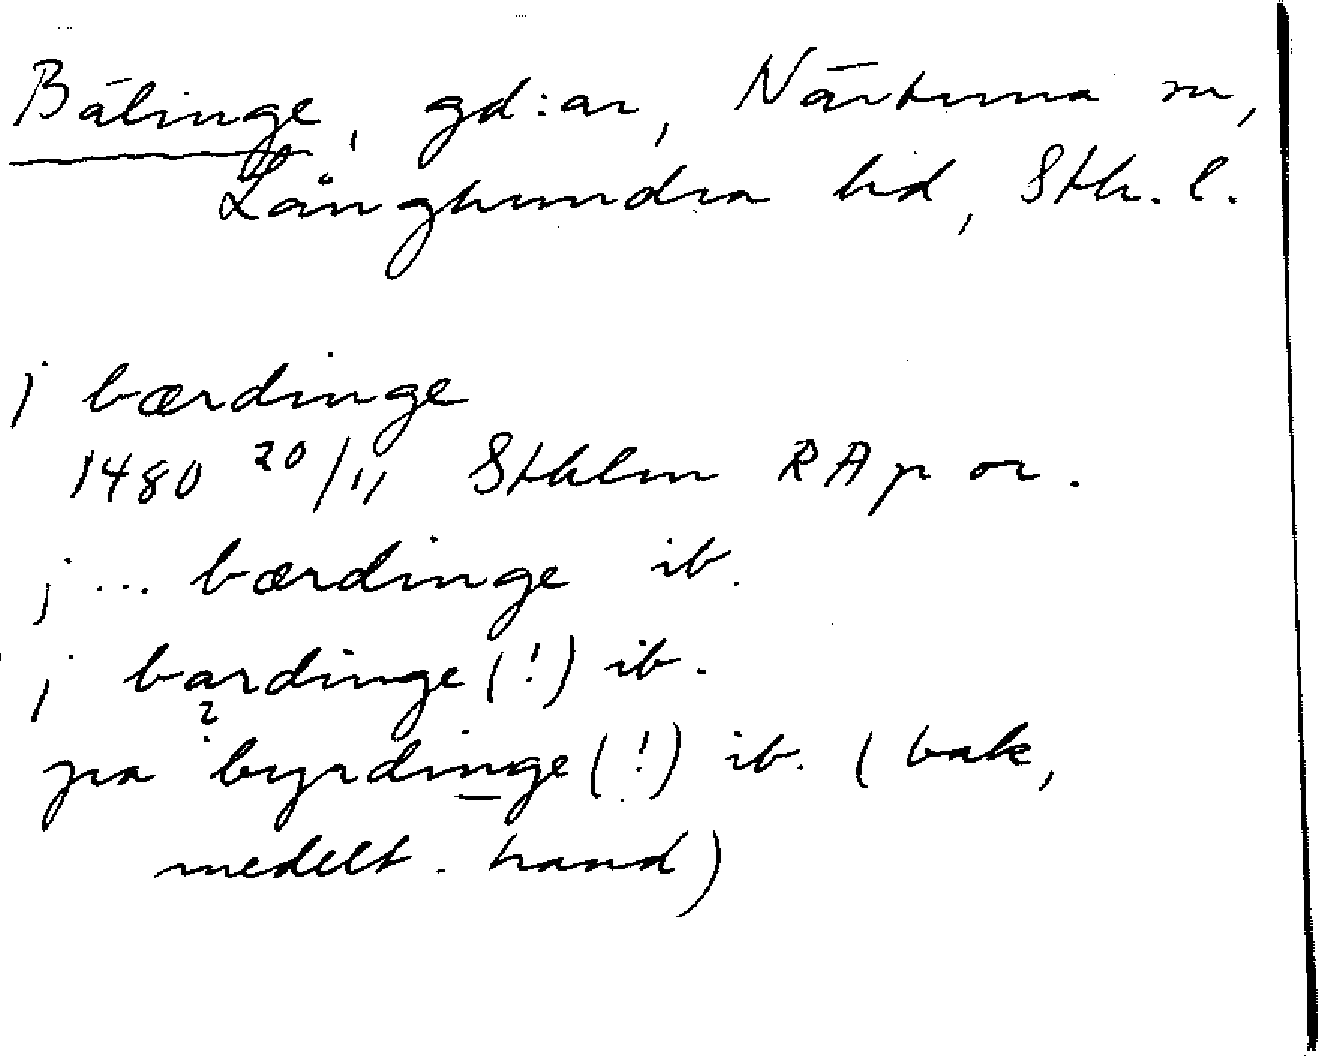 Bälinge, gd:ar, Närtuna sn,
Långhundra hd, Sth. l.
j bærdinge
1480 20/11 Sthlm RAp or.
j ... bærdinge ib.
j bardinge (!) ib.
pa byrdinge (!) ib. (bak,
medelt. hand)